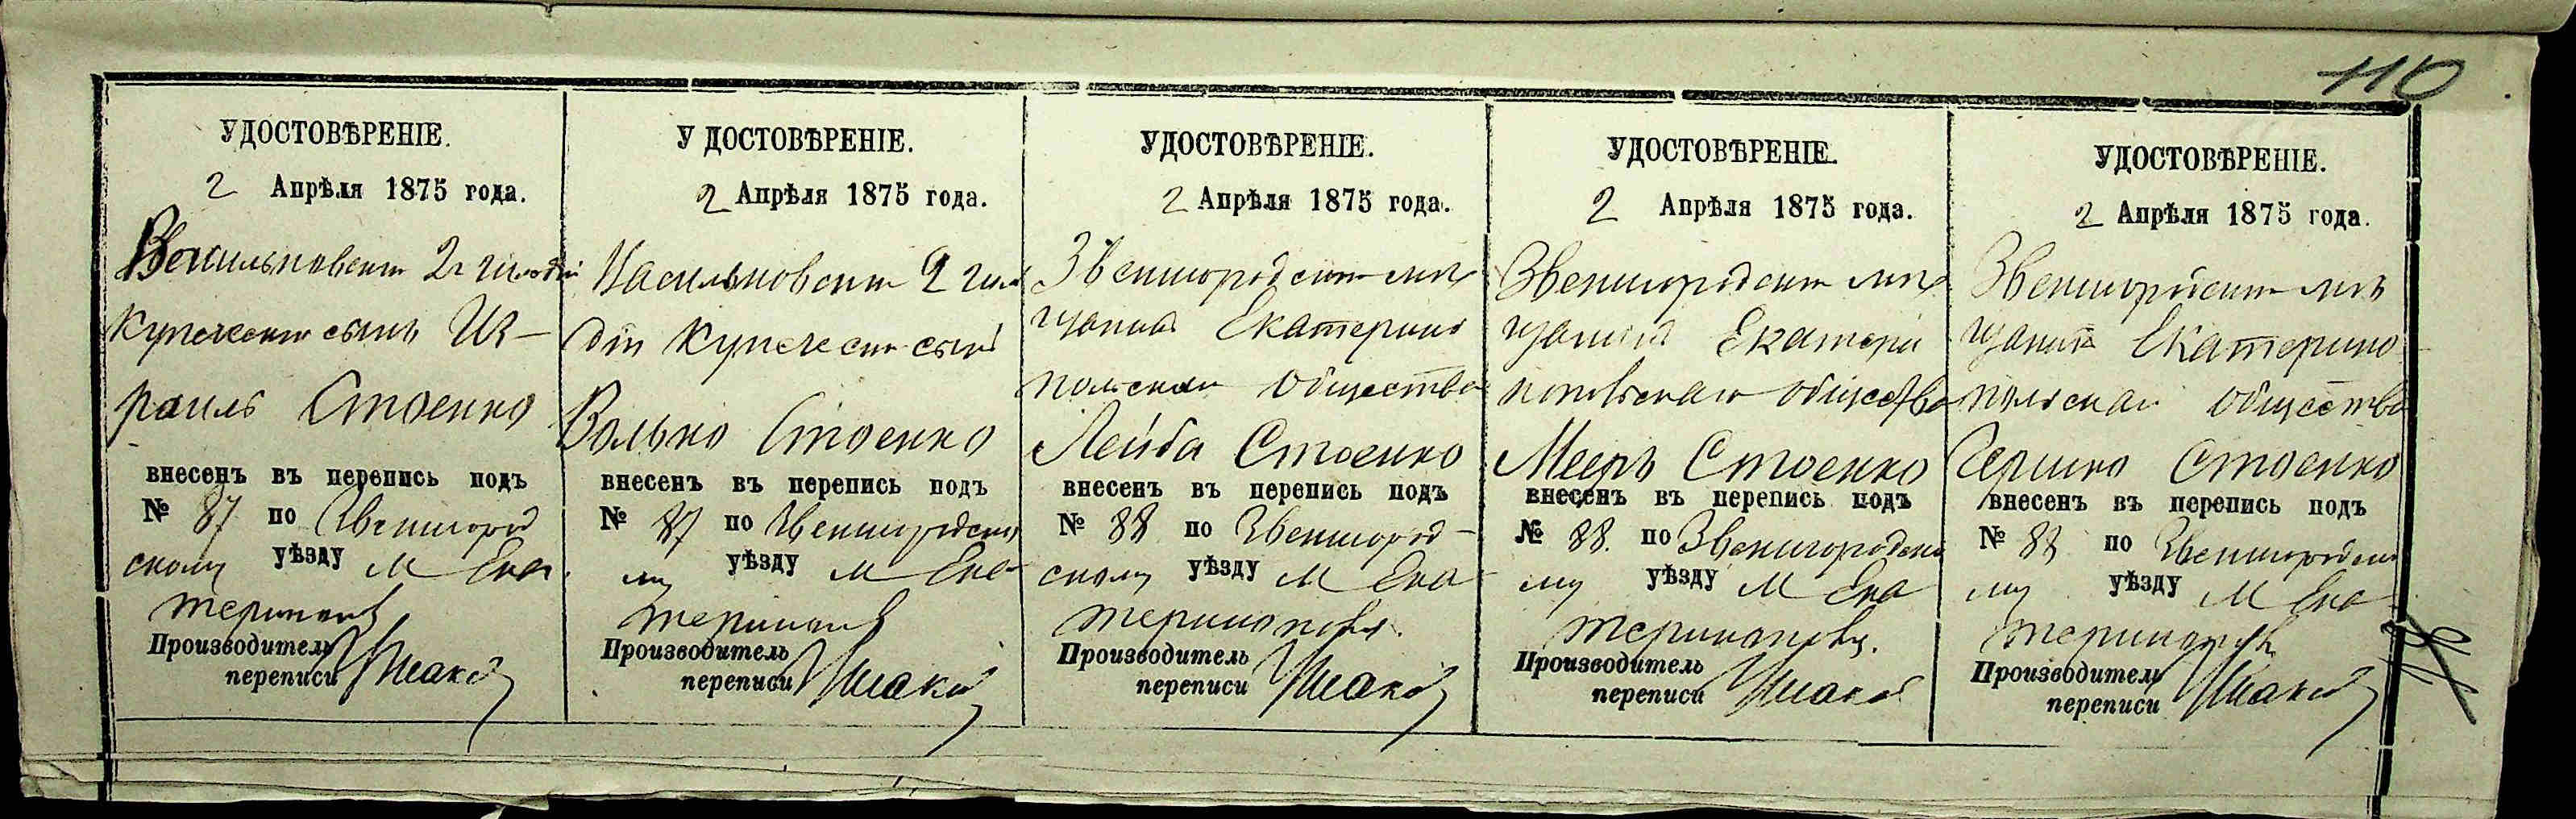 110
УДОСТОВѢРЕНІЕ.
2 Апрѣля 1875 года.
2й гильдіи
Купечески сынъ Из-
раиль Стоенко
внесенъ въ перепись подъ
№ 87 по Звенигород
скому уѣзду м Ека
Производитель
переписи
У ДОСТОВѢРЕНІЕ.
2 Апрѣля 1875 года.
Васильковскій 2 гил
діи Купеческ сынъ
Волько Стоенко
внесенъ въ перепись подъ
№ 87 по Звенигородско
му уѣзду м Ека-
Производитель
переписи
УДОСТОВѢРЕНІЕ.
2 Апрѣля 1875 года.
Звенигородскій мѣ
щанинъ Екатерино
польскаго общества
Лейба Стоенко
внесенъ въ перепись подъ
№ 88 по Звенигород-
скому уѣзду м Ека
теринополь.
Производитель
переписи
УДОСТОВѢРЕНІЕ.
2 Апрѣля 1875 года.
Звенигородскій мѣ
щанинъ Екатери
нопольскаго общества
Мееръ Стоенко
внесенъ въ перепись подъ
№ 88. по Звенигородско
му уѣзду м Ека
теринополь.
Производитель
переписи
УДОСТОВѢРЕНІЕ.
2 Апрѣля 1875 года.
Звенигородскій мѣ
щанинъ Екатерино
польскаго общества
Гершко Стоенко
внесенъ въ перепись подъ
№ 88 по Звенигородско
му уѣзду м Ека
теринополь
Производитель
переписи